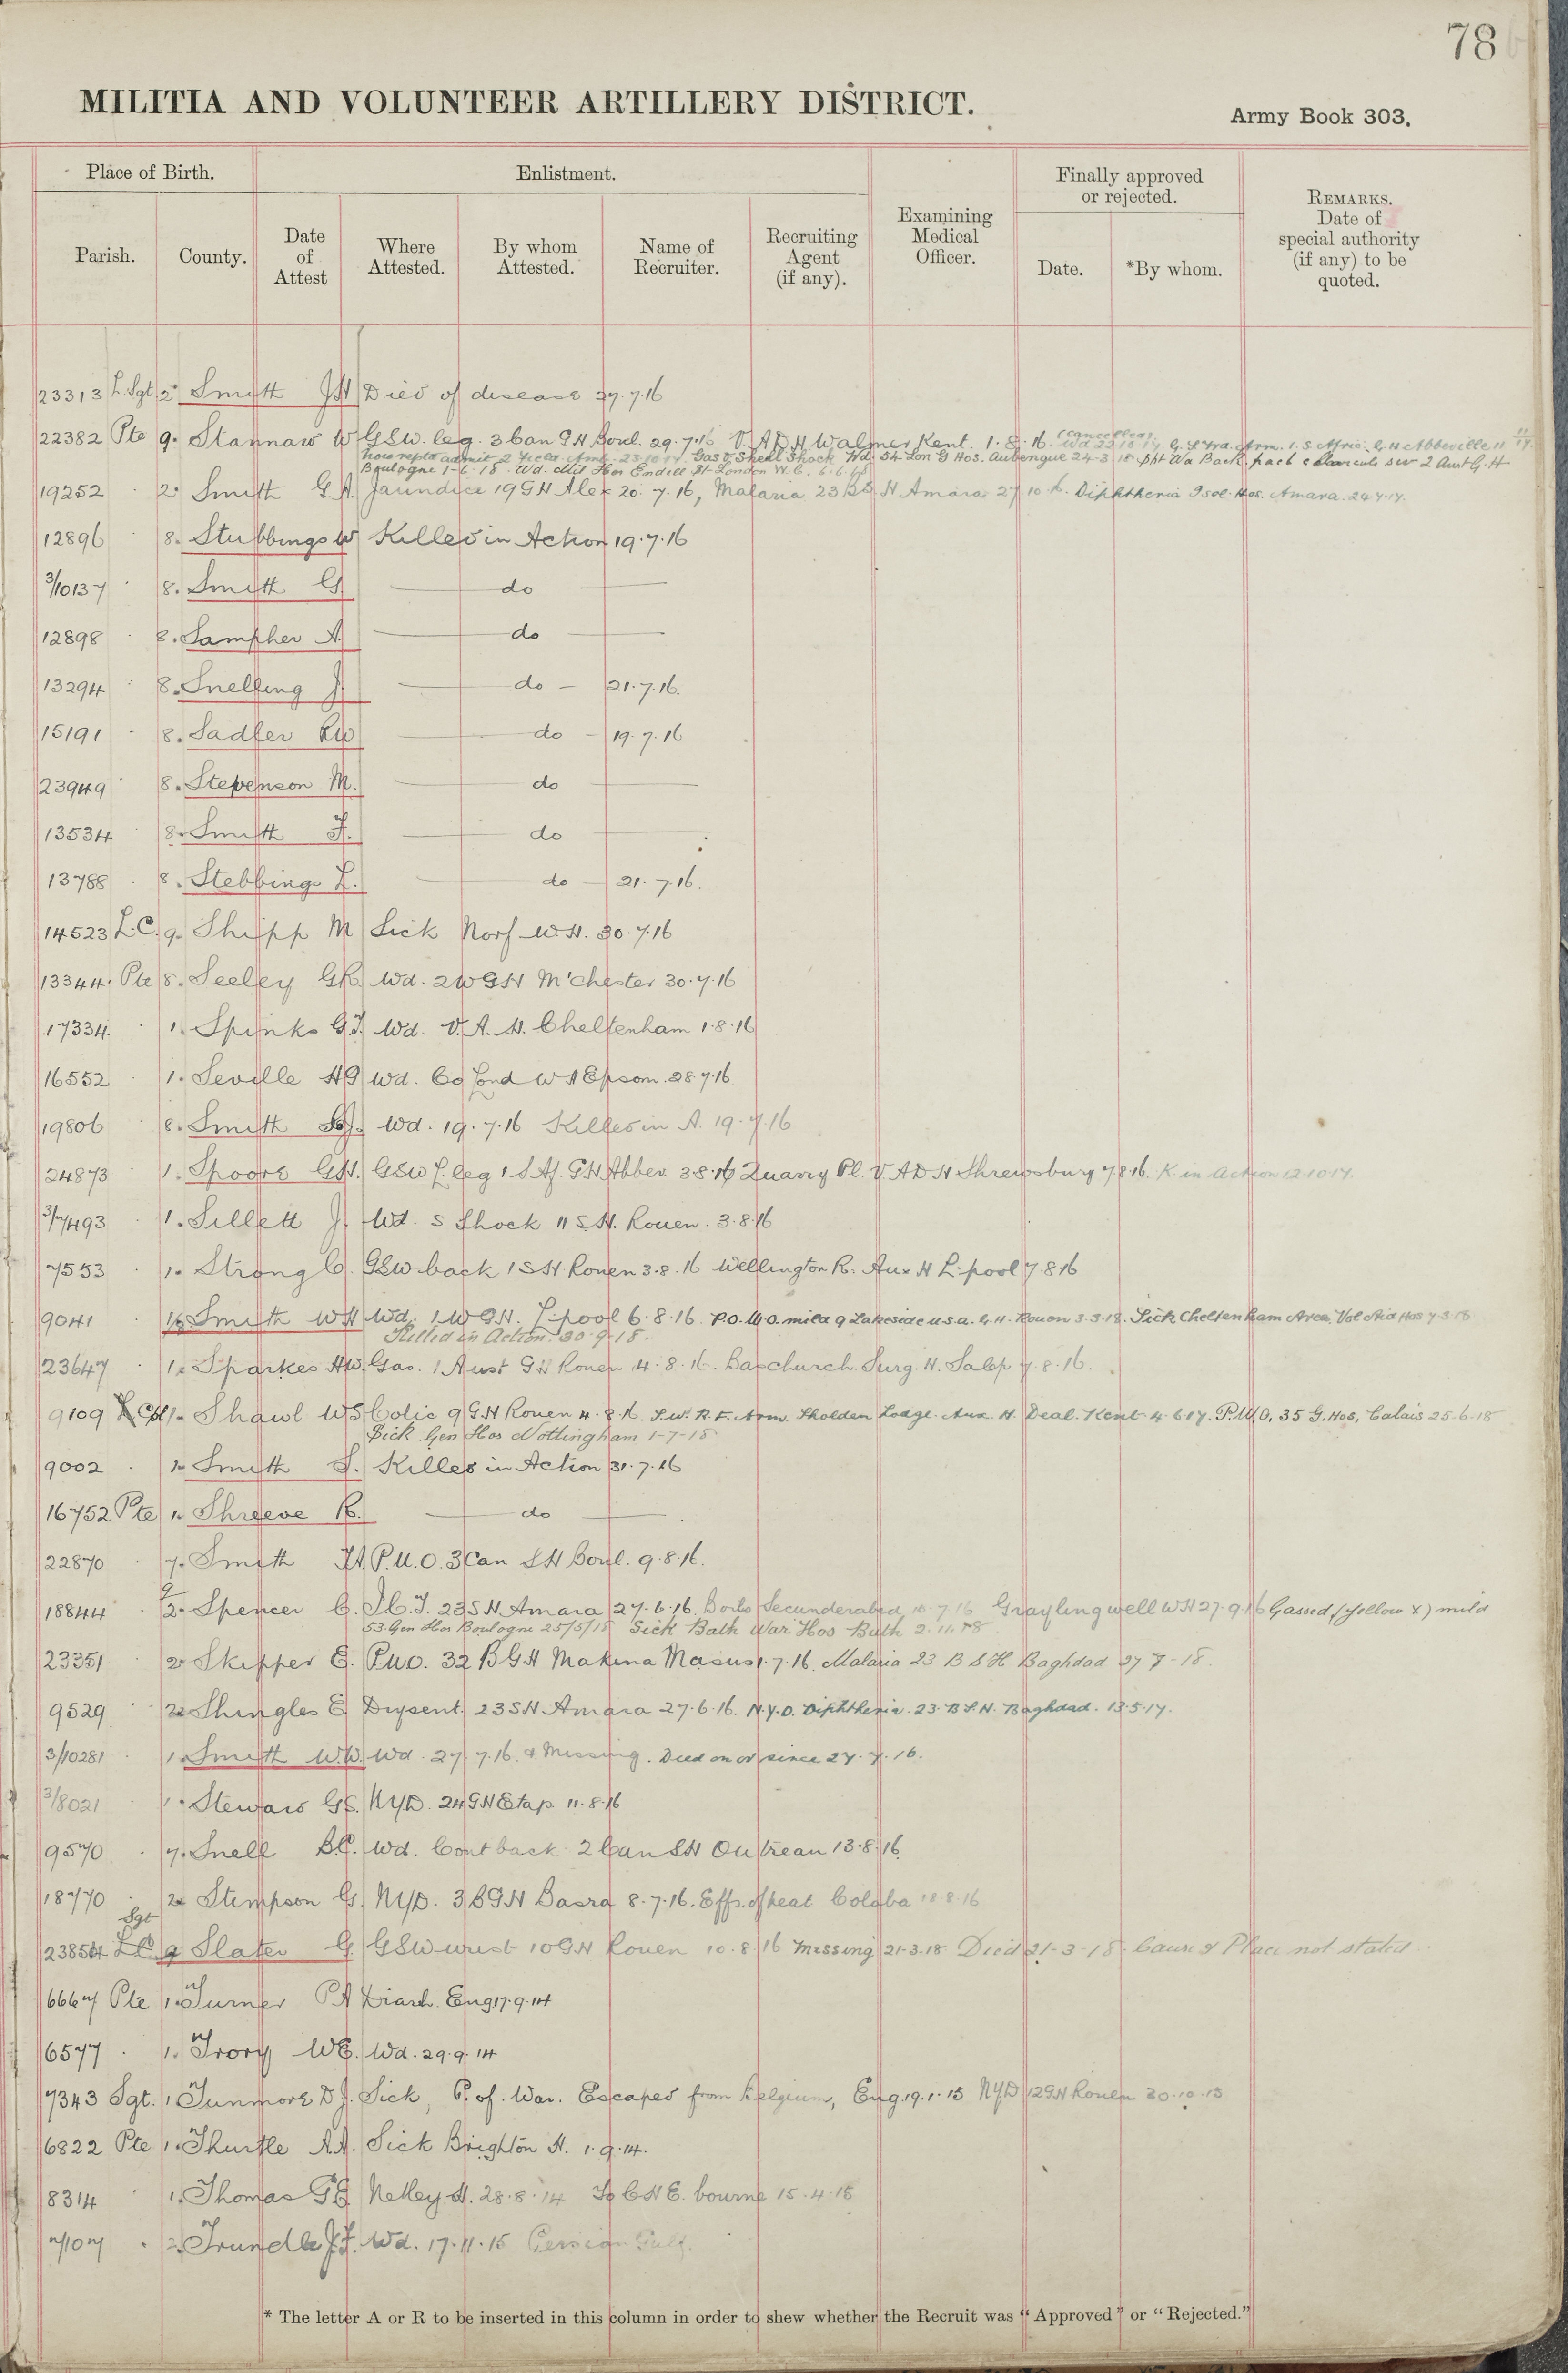 78
MILITIA AND VOLUNTEER ARTILLERY DISTRICT.
Army Book 303.
Place of Birth.
Enlistment.
Finally approved or rejected.
Parish.
County.
Date of Attest
Where Attested.
By whom Attested.
Name of Recruiter.
Recruiting Agent (if any).
Examining Medical Officer.
Date.
*By whom.
REMARKS. Date of special authority (if any) to be quoted.
23313 L.Sgt 2. Smith JH Died of disease 27.7.16
22382 Pte 9. Stannaw W GSW. leg. 3 Can G H Boul. 29.7.16 V.A.D.H Walmer Kent. 1.8.16 (Cancelled)
now reptd admit 2 Field Amb. 23.10.17 Gas & Shell Shock Wd. 54 Lon G Hos. Aubengue 24-3-18
Boulogne 1-6-18. Wd. Mil Hos Endell St London W.C. 6.6.18
19252 . 2. Smith G.A. Jaundice 19 G H Alex 20.7.16, Malaria 23 B S H Amara 27.10.16. Diphtheria Isol. Hos. Amara. 24.4.17.
12896 . 8. Stubbings W Killed in Action 19.7.16
3/10137 . 8. Smith G do
12898 . 8. Sampher A. do
13294 . 8. Snelling J. do - 21.7.16.
15191 . 8. Sadler RW do - 19.7.16
23949 . 8. Stevenson M. do
13534 . 8. Smith F. do
13788 . 8. Stebbings L. do - 21.7.16.
14523 L.C. 9. Shipp M Sick Norf W.H. 30.7.16
13344. Pte 8. Seeley GR. Wd. 2 W G H M'chester 30.7.16
17334 . 1. Spinks G.J. Wd. V.A.H. Cheltenham 1.8.16
16552 . 1. Seville HG Wd. Co Lond W H Epsom. 28.7.16
19806 . 8. Smith Wd. 19.7.16 Killed in A. 19.7.16
24873 . 1. Spoore GH. GSW L. leg 1 S.Af. G H Abbev. 3.8.16 Quarry Pl. V.A.D.H Shrewsbury 7.8.16. K. in Action 12.10.17.
3/7493 . 1. Sillett J. Wd. S Shock 11 S.H. Rouen. 3.8.16
7553 . 1. Strong C. GSW back 1 S H Rouen 3.8.16 Wellington R. Aux H L.pool 7.8.16
9041 . 1. Smith WH Wd. 1 W G H. L'pool 6.8.16. P.O.U.O. mild 9 Lakeside U.S.A. G.H. Rouen 3.3.18. Sick Cheltenham Area Vol Aid Hos 7.3.18
Killed in Action. 30.9.18.
23647 . 1. Sparkes HW. Gas. 1 Aust G H Rouen 4.8.16. Baschurch. Surg. H. Salop 7.8.16.
9109 Cpl 1. Shawl WS Colic 9 G H Rouen 4.8.16. S.W. R.F. Arm. Sholden Lodge Aux. H. Deal. Kent 4.6.17. P.U.O. 35 G. Hos, Calais 25-6-18
Sick Gen Hos Nottingham 1-7-18
9002 . 1. Smith S. Killed in Action 31.7.16
16752 Pte 1. Shreeve R. do
22870 . 7. Smith P.U.O. 3 Can S H Boul. 9.8.16.
18844 . 2. Spencer C. I.C.T. 23 S H Amara 27.6.16. Boils Secunderabad 10.7.16 Graylingwell W H 27.9.16 Gassed (Yellow X) mild
53 Gen Hos Boulogne 25/5/18 Sick Bath War Hos Bath 2.11.18
23351 . 2. Skipper E. P.U.O. 32 B G H Makina Masus 1.7.16. Malaria 23 B S H Baghdad 27-7-18.
9529 . 2. Shingles E Dysent. 23 S H Amara 27.6.16. N.Y.D. Diphtheria. 23. B.S.H. Baghdad. 13.5.17.
3/10281 . 1. Smith W.W. Wd. 27.7.16. & Missing. Died on or since 27.7.16.
3/8021 . 1. Steward GS. N.Y.D. 24 G H Etap. 11.8.16
9570 . 7. Snell B.C. Wd. Cont back 2 Can S H Outreau 13.8.16
18770 . 2. Stimpson G. N.Y.D. 3 B G H Basra 8.7.16. Effs. of heat Colaba 18.8.16
Sgt
23854 L.C. 9 Slater G. GSW wrist 10 G H Rouen 10.8.16 Missing 21-3-18 Died 21-3-18 Cause & Place not stated.
6667 Pte 1. Turner P A Diarh. Eng 17.9.14
6577 . 1. Tvory WE. Wd. 29.9.14
7343 Sgt. 1 Tunmore D J. Sick, P. of. War. Escaped from Belgium, Eng. 19.1.15 N.Y.D 12 G H Rouen 30.10.15
6822 Pte 1. Thurtle A.A. Sick Brighton H. 1.9.14.
8314 . 1. Thomas G E Netley H. 28.8.14 To C H E. bourne 15.4.15
7107 . 2. Trundle J.J. Wd. 17.11.15 Persian Gulf.
* The letter A or R to be inserted in this column in order to shew whether the Recruit was “Approved” or “Rejected.”